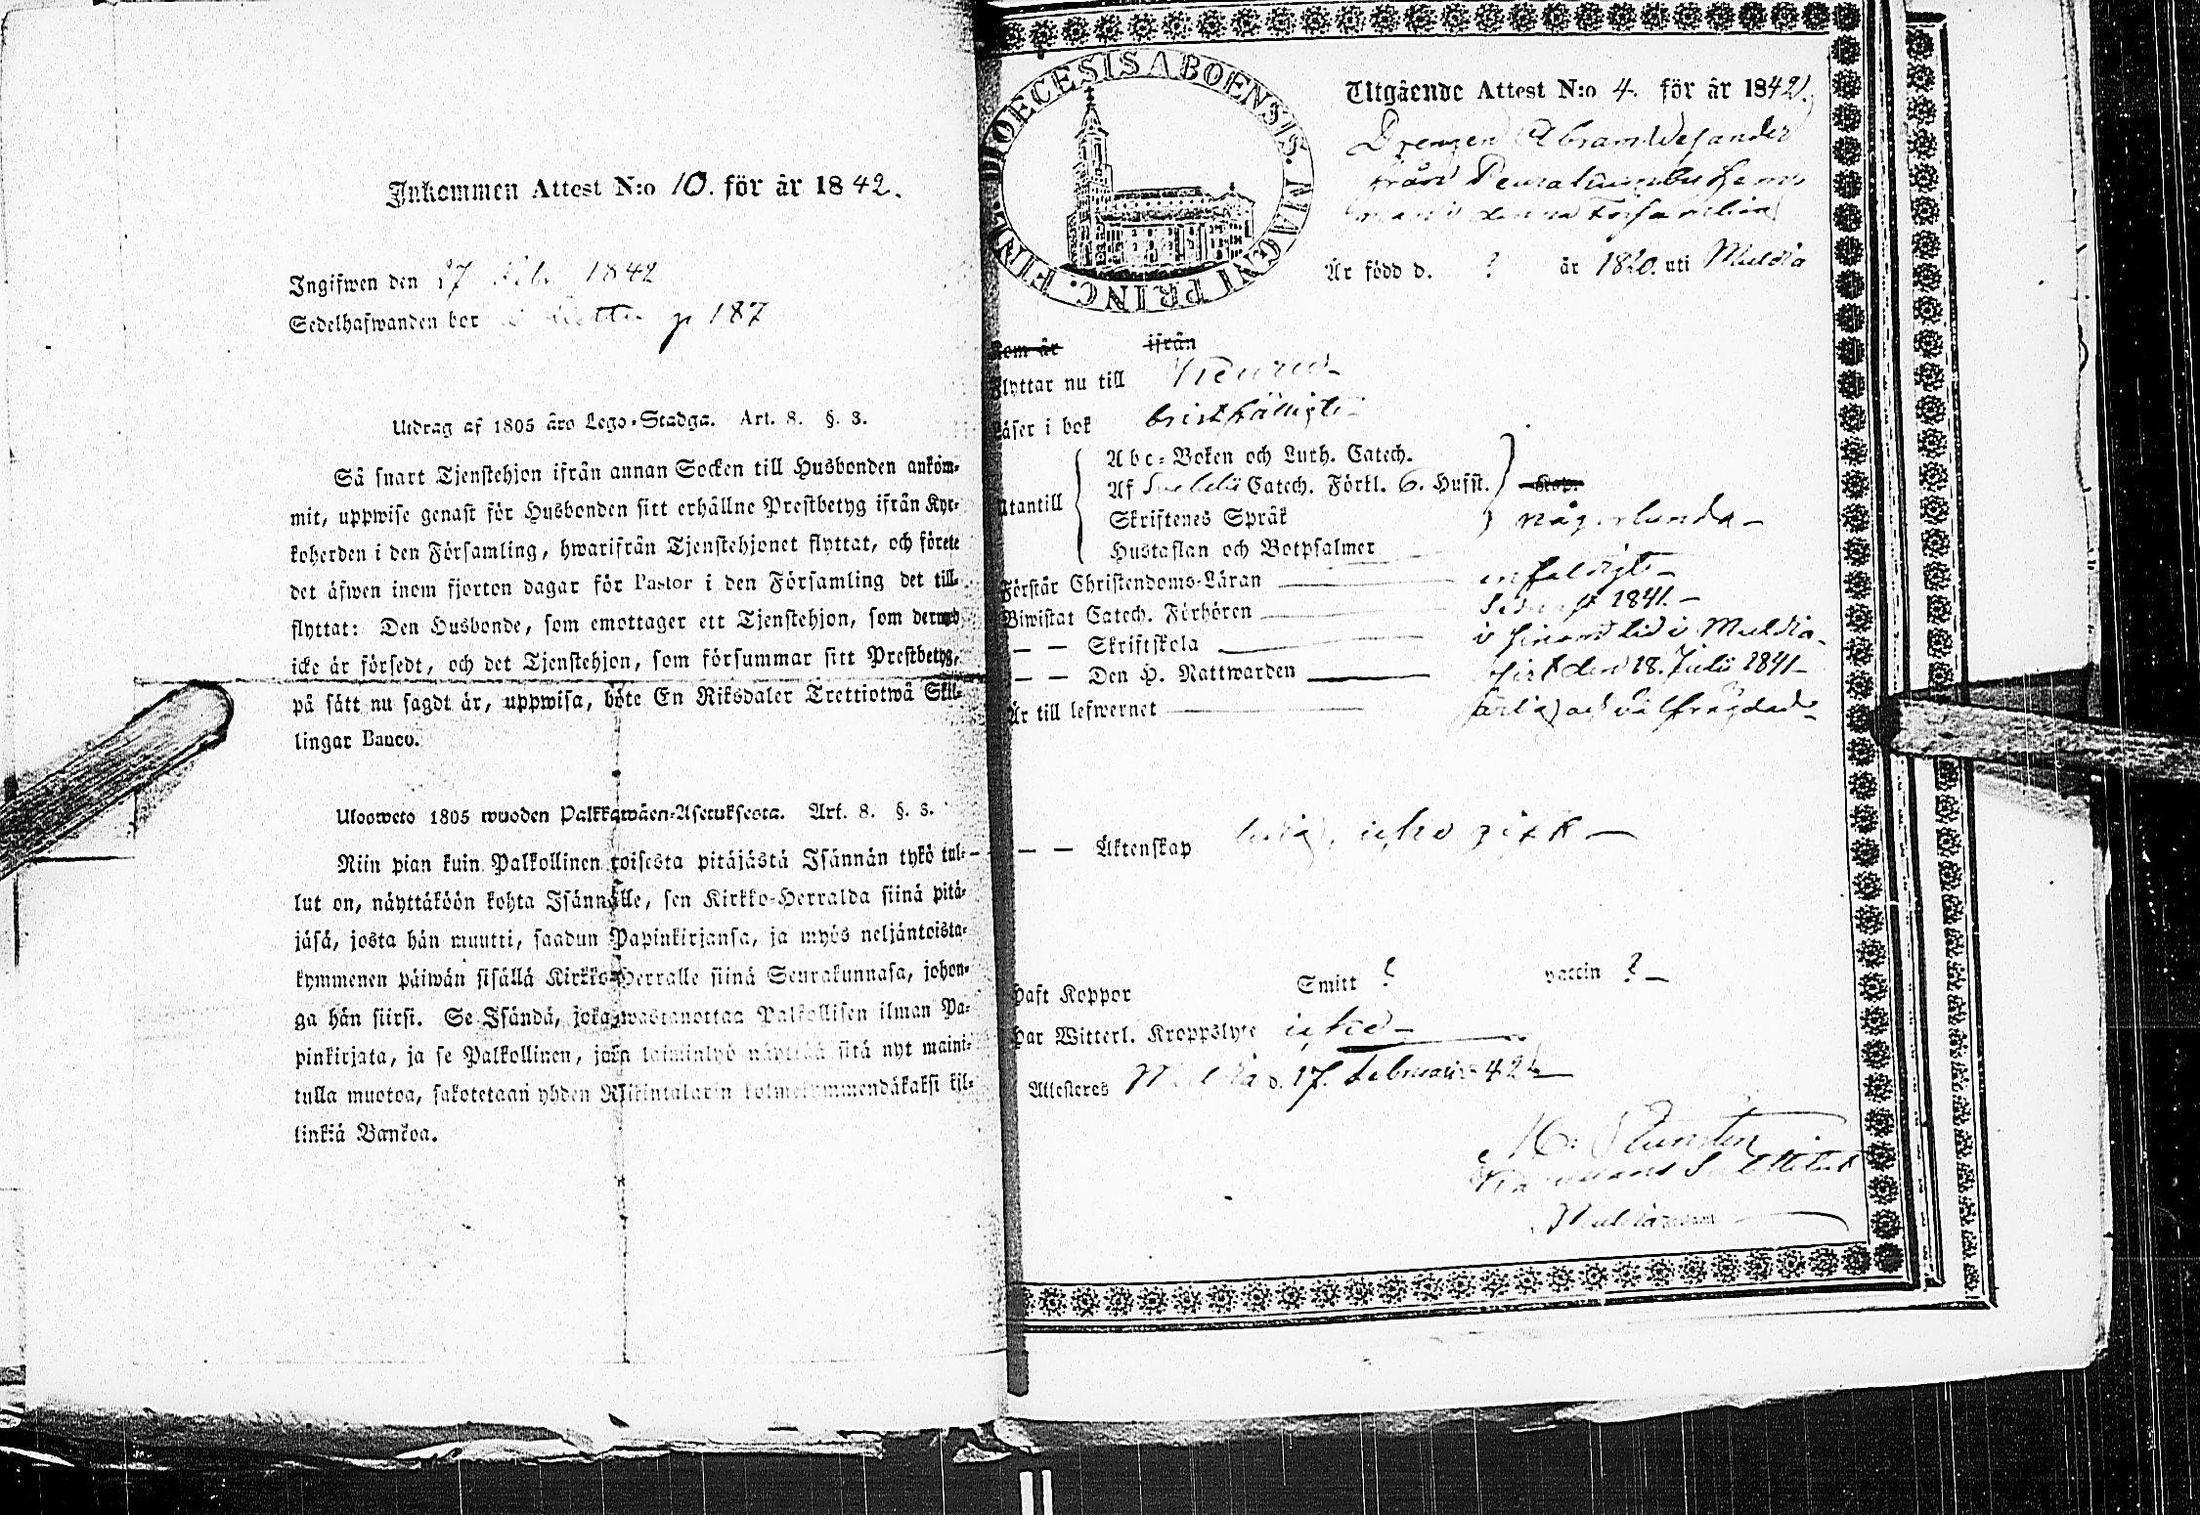 Inkommen Attest N:o 10. för år 1842.
Ingifwen den 27 Feb. 1842
Sedelhafwanden bor p 187
Utdrag af 1805 års Lego-Stadga. Art. 8. §. 3.
Så snart Tjenstehjon ifrån annan Socken till Husbonden ankom-
mit, uppwise genast för Husbonden sitt erhållne Prestbetyg ifrån Kyr-
koherden i den Församling, hwarifrån Tjenstehjonet flyttat, och förete
det äfwen inom fjorton dagar för Pastor i den Församling det till-
flyttat: Den Husbonde, som emottager ett Tjenstehjon, som dermed
icke är försedt, och det Tjenstehjon, som försummar sitt Prestbetyg,
på sätt nu sagdt är, uppwisa, böte En Riksdaler Trettiotwå Skil-
lingar Banco.
Ulosweto 1805 wuoden Palkkawäen-Asetuksesta. Art. 8. §. 3.
Niin pian kuin Palkollinen toisesta pitäjästä Isännän tykö tul-
lut on, näyttäköön kohta Isännälle, sen Kirkko-Herralda siinä pitä-
jäsä, josta hän muutti, saadun Papinkirjansa, ja myös neljäntoista-
kymmenen päiwän sisällä Kirkko-Herralle siinä Seurakunnasa, johon-
ga hän siirsi. Se Isändä, joka wastanottaa Palkollisen ilman Pa-
pinkirjata, ja se Palkollinen, joka laiminlyö näyttää sitä nyt maini-
tulla muotoa, sakotetaan yhden Riikintalarin kolmekymmendäkaksi kil-
linkiä Bankoa.
DIOECESIS ABOENSIS. MAGNI PRINC. FINL.
Utgående Attest N:o 4. för år 1842.
Drengen Abram
från
man i denna Församling
Är född d. ? år 1820. uti Muldia
Kom år ifrån
Flyttar nu till Keuru
Läser i bok bristfälligt
Abc-Boken och Luth. Catech.
Af Svebelii Catech. Förkl. 6. Hufst. Kap.
Utantill
Skriftenes Språk någorlunda
Hustaflan och Botpsalmer
Förstår Christendoms-Läran enfaldigt
Biwistat Catech. Förhören senast 1841.
— — Skriftskola i sinom tid i Muldia
— — Den H. Nattwarden sist den 18. Julii 1841
Är till lefwernet ärlig och välfrägdad
— — Äktenskap ledig, icke gift
Haft Koppor Smitt ? vaccin ?
Har Witterl. Kroppslyte icke
Attesteres Muldia d. 17. Februarii 42